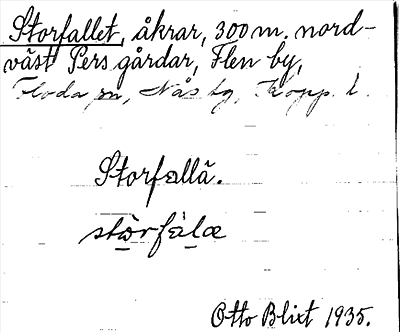 Storfallet, åkrar, 300 m. nord-
väst Pers gårdar, Flen by,
Floda sn, Nås tg, Kopp. l.
Storfallä.
stòrfàlæ
Otto Blixt 1935.